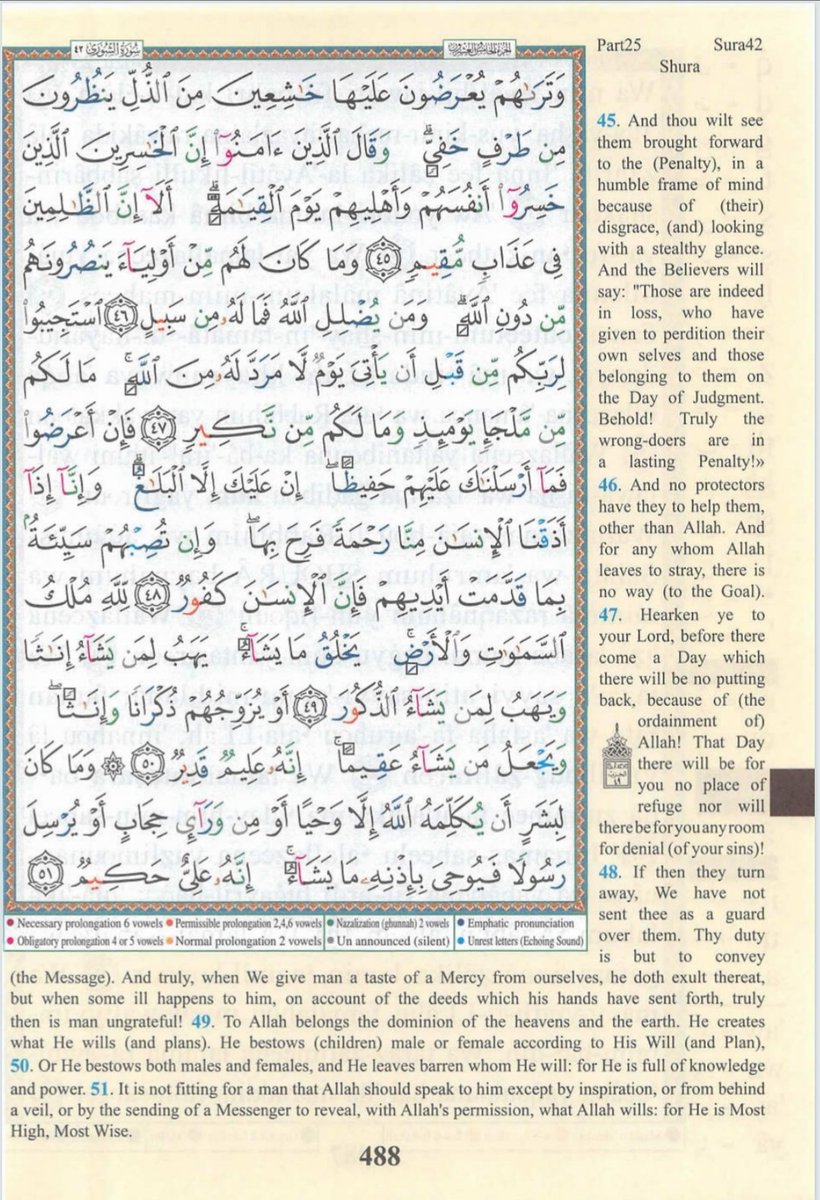 سُورَةُ الشُّورَىٰ ٤٢
الجزء الخامس والعشرون
Part25 Sura42
Shura
وَتَرَىٰهُمْ يُعْرَضُونَ عَلَيْهَا خَٰشِعِينَ مِنَ ٱلذُّلِّ يَنظُرُونَ
مِن طَرْفٍ خَفِىٍّۗ وَقَالَ ٱلَّذِينَ ءَامَنُوٓا۟ إِنَّ ٱلْخَٰسِرِينَ ٱلَّذِينَ
خَسِرُوٓا۟ أَنفُسَهُمْ وَأَهْلِيهِمْ يَوْمَ ٱلْقِيَٰمَةِۗ أَلَآ إِنَّ ٱلظَّٰلِمِينَ
فِى عَذَابٍ مُّقِيمٍ ٤٥ وَمَا كَانَ لَهُم مِّنْ أَوْلِيَآءَ يَنصُرُونَهُم
مِّن دُونِ ٱللَّهِۗ وَمَن يُضْلِلِ ٱللَّهُ فَمَا لَهُۥ مِن سَبِيلٍ ٤٦ ٱسْتَجِيبُوا۟
لِرَبِّكُم مِّن قَبْلِ أَن يَأْتِىَ يَوْمٌ لَّا مَرَدَّ لَهُۥ مِنَ ٱللَّهِۚ مَا لَكُم
مِّن مَّلْجَإٍ يَوْمَئِذٍ وَمَا لَكُم مِّن نَّكِيرٍ ٤٧ فَإِنْ أَعْرَضُوا۟
فَمَآ أَرْسَلْنَٰكَ عَلَيْهِمْ حَفِيظًاۖ إِنْ عَلَيْكَ إِلَّا ٱلْبَلَٰغُۗ وَإِنَّآ إِذَآ
أَذَقْنَا ٱلْإِنسَٰنَ مِنَّا رَحْمَةً فَرِحَ بِهَاۖ وَإِن تُصِبْهُمْ سَيِّئَةٌۢ
بِمَا قَدَّمَتْ أَيْدِيهِمْ فَإِنَّ ٱلْإِنسَٰنَ كَفُورٌ ٤٨ لِّلَّهِ مُلْكُ
ٱلسَّمَٰوَٰتِ وَٱلْأَرْضِۚ يَخْلُقُ مَا يَشَآءُۚ يَهَبُ لِمَن يَشَآءُ إِنَٰثًا
وَيَهَبُ لِمَن يَشَآءُ ٱلذُّكُورَ ٤٩ أَوْ يُزَوِّجُهُمْ ذُكْرَانًا وَإِنَٰثًاۖ
وَيَجْعَلُ مَن يَشَآءُ عَقِيمًاۚ إِنَّهُۥ عَلِيمٌ قَدِيرٌ ٥٠ ۞ وَمَا كَانَ
لِبَشَرٍ أَن يُكَلِّمَهُ ٱللَّهُ إِلَّا وَحْيًا أَوْ مِن وَرَآئِ حِجَابٍ أَوْ يُرْسِلَ
رَسُولًا فَيُوحِىَ بِإِذْنِهِۦ مَا يَشَآءُۚ إِنَّهُۥ عَلِىٌّ حَكِيمٌ ٥١
• Necessary prolongation 6 vowels • Permissible prolongation 2,4,6 vowels • Nazalization (ghunnah) 2 vowels • Emphatic pronunciation
• Obligatory prolongation 4 or 5 vowels • Normal prolongation 2 vowels • Un announced (silent) • Unrest letters (Echoing Sound)
45. And thou wilt see
them brought forward
to the (Penalty), in a
humble frame of mind
because of (their)
disgrace, (and) looking
with a stealthy glance.
And the Believers will
say: "Those are indeed
in loss, who have
given to perdition their
own selves and those
belonging to them on
the Day of Judgment.
Behold! Truly the
wrong-doers are in
a lasting Penalty!»
46. And no protectors
have they to help them,
other than Allah. And
for any whom Allah
leaves to stray, there is
no way (to the Goal).
47. Hearken ye to
your Lord, before there
come a Day which
there will be no putting
back, because of (the
ordainment of)
Allah! That Day
there will be for
you no place of
refuge nor will
there be for you any room
for denial (of your sins)!
48. If then they turn
away, We have not
sent thee as a guard
over them. Thy duty
is but to convey
(the Message). And truly, when We give man a taste of a Mercy from ourselves, he doth exult thereat,
but when some ill happens to him, on account of the deeds which his hands have sent forth, truly
then is man ungrateful! 49. To Allah belongs the dominion of the heavens and the earth. He creates
what He wills (and plans). He bestows (children) male or female according to His Will (and Plan),
50. Or He bestows both males and females, and He leaves barren whom He will: for He is full of knowledge
and power. 51. It is not fitting for a man that Allah should speak to him except by inspiration, or from behind
a veil, or by the sending of a Messenger to reveal, with Allah's permission, what Allah wills: for He is Most
High, Most Wise.
488